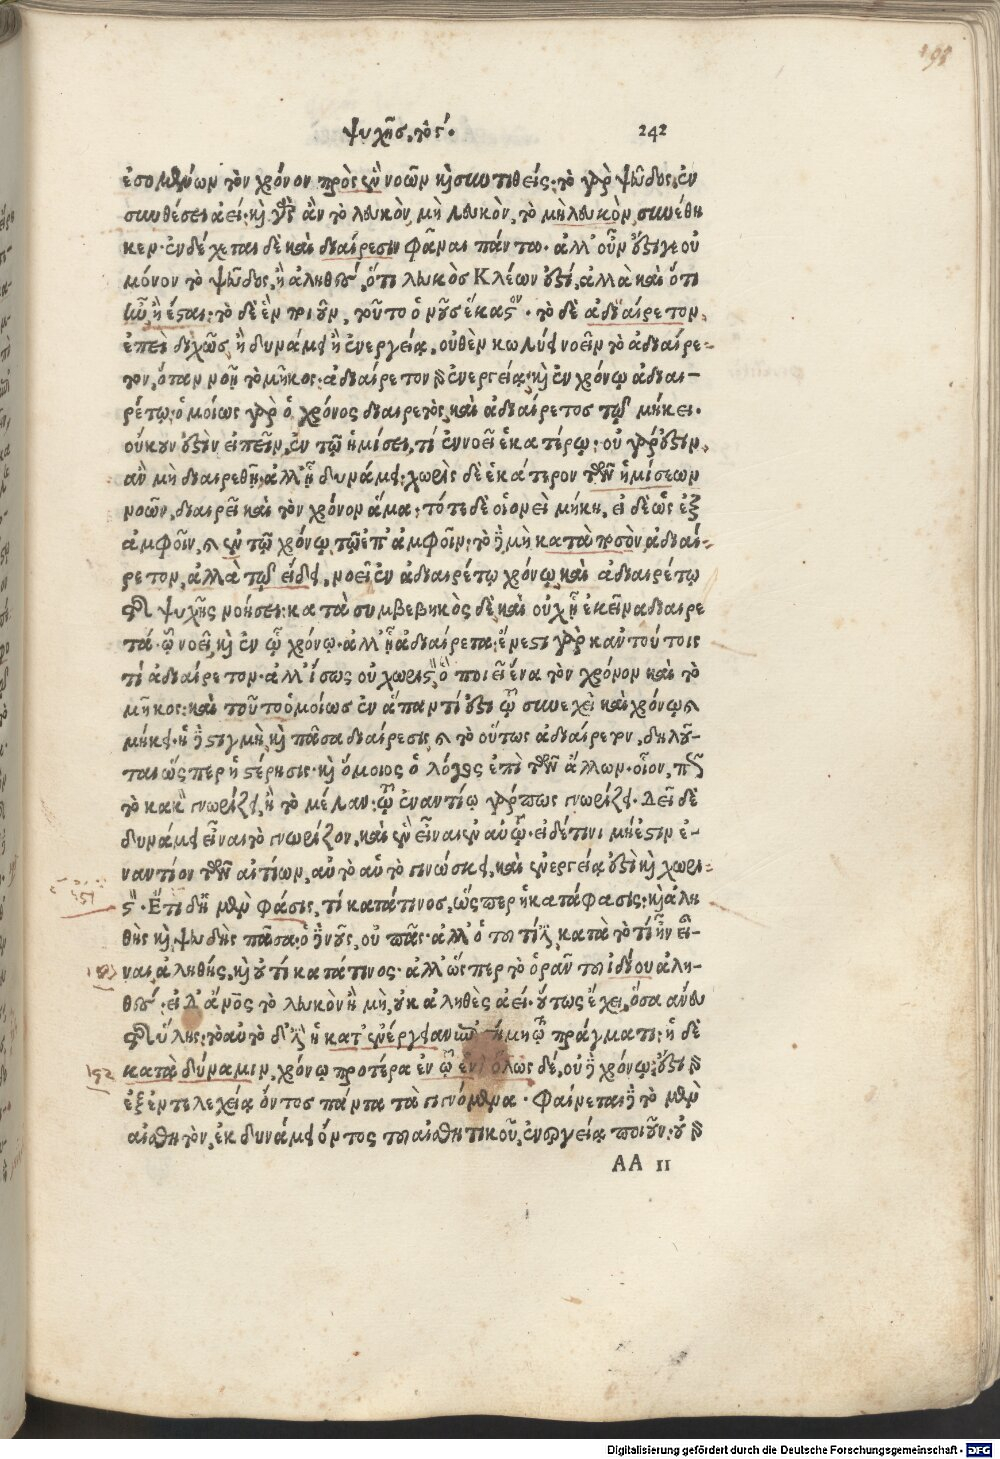 ψυχῆς, τὸ γ΄.
242
198
ἐσομένων τὸν χρόνον προσεννοῶν κ συντιθείς· τὸ γὰρ ψεῦδος, ἐν
συνθέσει ἀεί· κ γὰρ ἂν τὸ λευκὸν, μὴ λευκὸν, τὸ μὴ λευκὸν, συνέθη
κεν. ἐνδέχεται δὲ καὶ διαίρεσιν φάναι πάντα. ἀλλ' οὖν ἔστι γε οὐ
μόνον τὸ ψεῦδος, ἢ ἀληθές, ὅτι λευκὸς Κλέων ἐστί, ἀλλὰ καὶ ὅτι
ἦν, ἢ ἔσται· τὸ δὲ ἓν ποιοῦν, τοῦτο ὁ νοῦς ἕκαστον. τὸ δὲ ἀδιαίρετον,
ἐπεὶ διχῶς, ἢ δυνάμει ἢ ἐνεργείᾳ, οὐθὲν κωλύει νοεῖν τὸ ἀδιαίρε-
τον, ὅταν νοῇ τὸ μῆκος· ἀδιαίρετον γὰρ ἐνεργείᾳ· κ ἐν χρόνῳ ἀδιαι-
ρέτῳ· ὁμοίως γὰρ ὁ χρόνος διαιρετὸς, καὶ ἀδιαίρετος τῷ μήκει.
οὔκουν ἔστιν εἰπεῖν, ἐν τῷ ἡμίσει, τί ἐννοεῖ ἑκατέρῳ· οὐ γὰρ ἔστιν,
ἂν μὴ διαιρεθῇ, ἀλλ' ἢ δυνάμει· χωρὶς δὲ ἑκάτερον τῶν ἡμίσεων
νοῶν, διαιρεῖ καὶ τὸν χρόνον ἅμα· τότε δὲ οἱονεὶ μήκη. εἰ δὲ ὡς ἐξ
ἀμφοῖν, καὶ ἐν τῷ χρόνῳ τῷ ἐπ' ἀμφοῖν· τὸ δὲ μὴ κατὰ ποσὸν ἀδιαί-
ρετον, ἀλλὰ τῷ εἴδει, νοεῖ ἐν ἀδιαιρέτῳ χρόνῳ καὶ ἀδιαιρέτῳ
τῆς ψυχῆς νοήσει· κατὰ συμβεβηκὸς δὲ καὶ οὐχ ᾗ ἐκεῖνα διαιρε
τά. ᾧ νοεῖ, κ ἐν ᾧ χρόνῳ. ἀλλ' ᾗ ἀδιαίρετα· ἔνεστι γὰρ κἀν τούτοις
τί ἀδιαίρετον. ἀλλ' ἴσως οὐ χωριστὸν, ὃ ποιεῖ ἕνα τὸν χρόνον καὶ τὸ
μῆκος· καὶ τοῦτο ὁμοίως ἐν ἅπαντί ἐστι τῷ συνεχεῖ καὶ χρόνῳ καὶ
μήκει. ἡ δὲ στιγμὴ κ πᾶσα διαίρεσις καὶ τὸ οὕτως ἀδιαίρετον, δηλοῦ-
ται ὥσπερ ἡ στέρησις. κ ὅμοιος ὁ λόγος ἐπὶ τῶν ἄλλων. οἷον, πῶς
τὸ κακὸν γνωρίζει, ἢ τὸ μέλαν· τῷ ἐναντίῳ γάρ πως γνωρίζει. Δεῖ δὲ
δυνάμει εἶναι τὸ γνωρίζον, καὶ ἓν εἶναι ἐν αὐτῷ. εἰ δέ τινι μή ἐστιν ἐ-
ναντίον τῶν αἰτίων, αὐτὸ αὑτὸ γινώσκει, καὶ ἐνεργείᾳ ἐστὶ κ χωρι-
στόν. Ἔτι δὴ μὲν φάσις, τί κατά τινος, ὥσπερ ἡ κατάφασις· κ ἀλη
θὴς κ ψευδὴς πᾶσα· ὁ δὲ νοῦς, οὐ πᾶς. ἀλλ' ὁ τοῦ τί ἐστι, κατὰ τὸ τί ἦν εἶ-
ναι ἀληθής, κ οὐ τί κατά τινος. ἀλλ' ὥσπερ τὸ ὁρᾶν τοῦ ἰδίου ἀλη-
θές. εἰ δ' ἄνθρωπος τὸ λευκὸν ἢ μὴ, οὐκ ἀληθὲς ἀεί. οὕτως ἔχει, ὅσα ἄνευ
τῆς ὕλης· τὸ αὐτὸ δ' ἐστὶν ἡ κατ' ἐνέργειαν ἐπιστήμη τῷ πράγματι· ἡ δὲ
κατὰ δύναμιν, χρόνῳ προτέρα ἐν τῷ ἑνὶ ὅλως δέ, οὐδὲ χρόνῳ· ἔστι γὰρ
ἐξ ἐντελεχείᾳ ὄντος πάντα τὰ γινόμενα. Φαίνεται δὲ τὸ μὲν
αἰσθητὸν, ἐκ δυνάμει ὄντος τοῦ αἰσθητικοῦ, ἐνεργείᾳ ποιοῦν· οὐ γὰρ
AA II
151
152
Digitalisierung gefördert durch die Deutsche Forschungsgemeinschaft - DFG